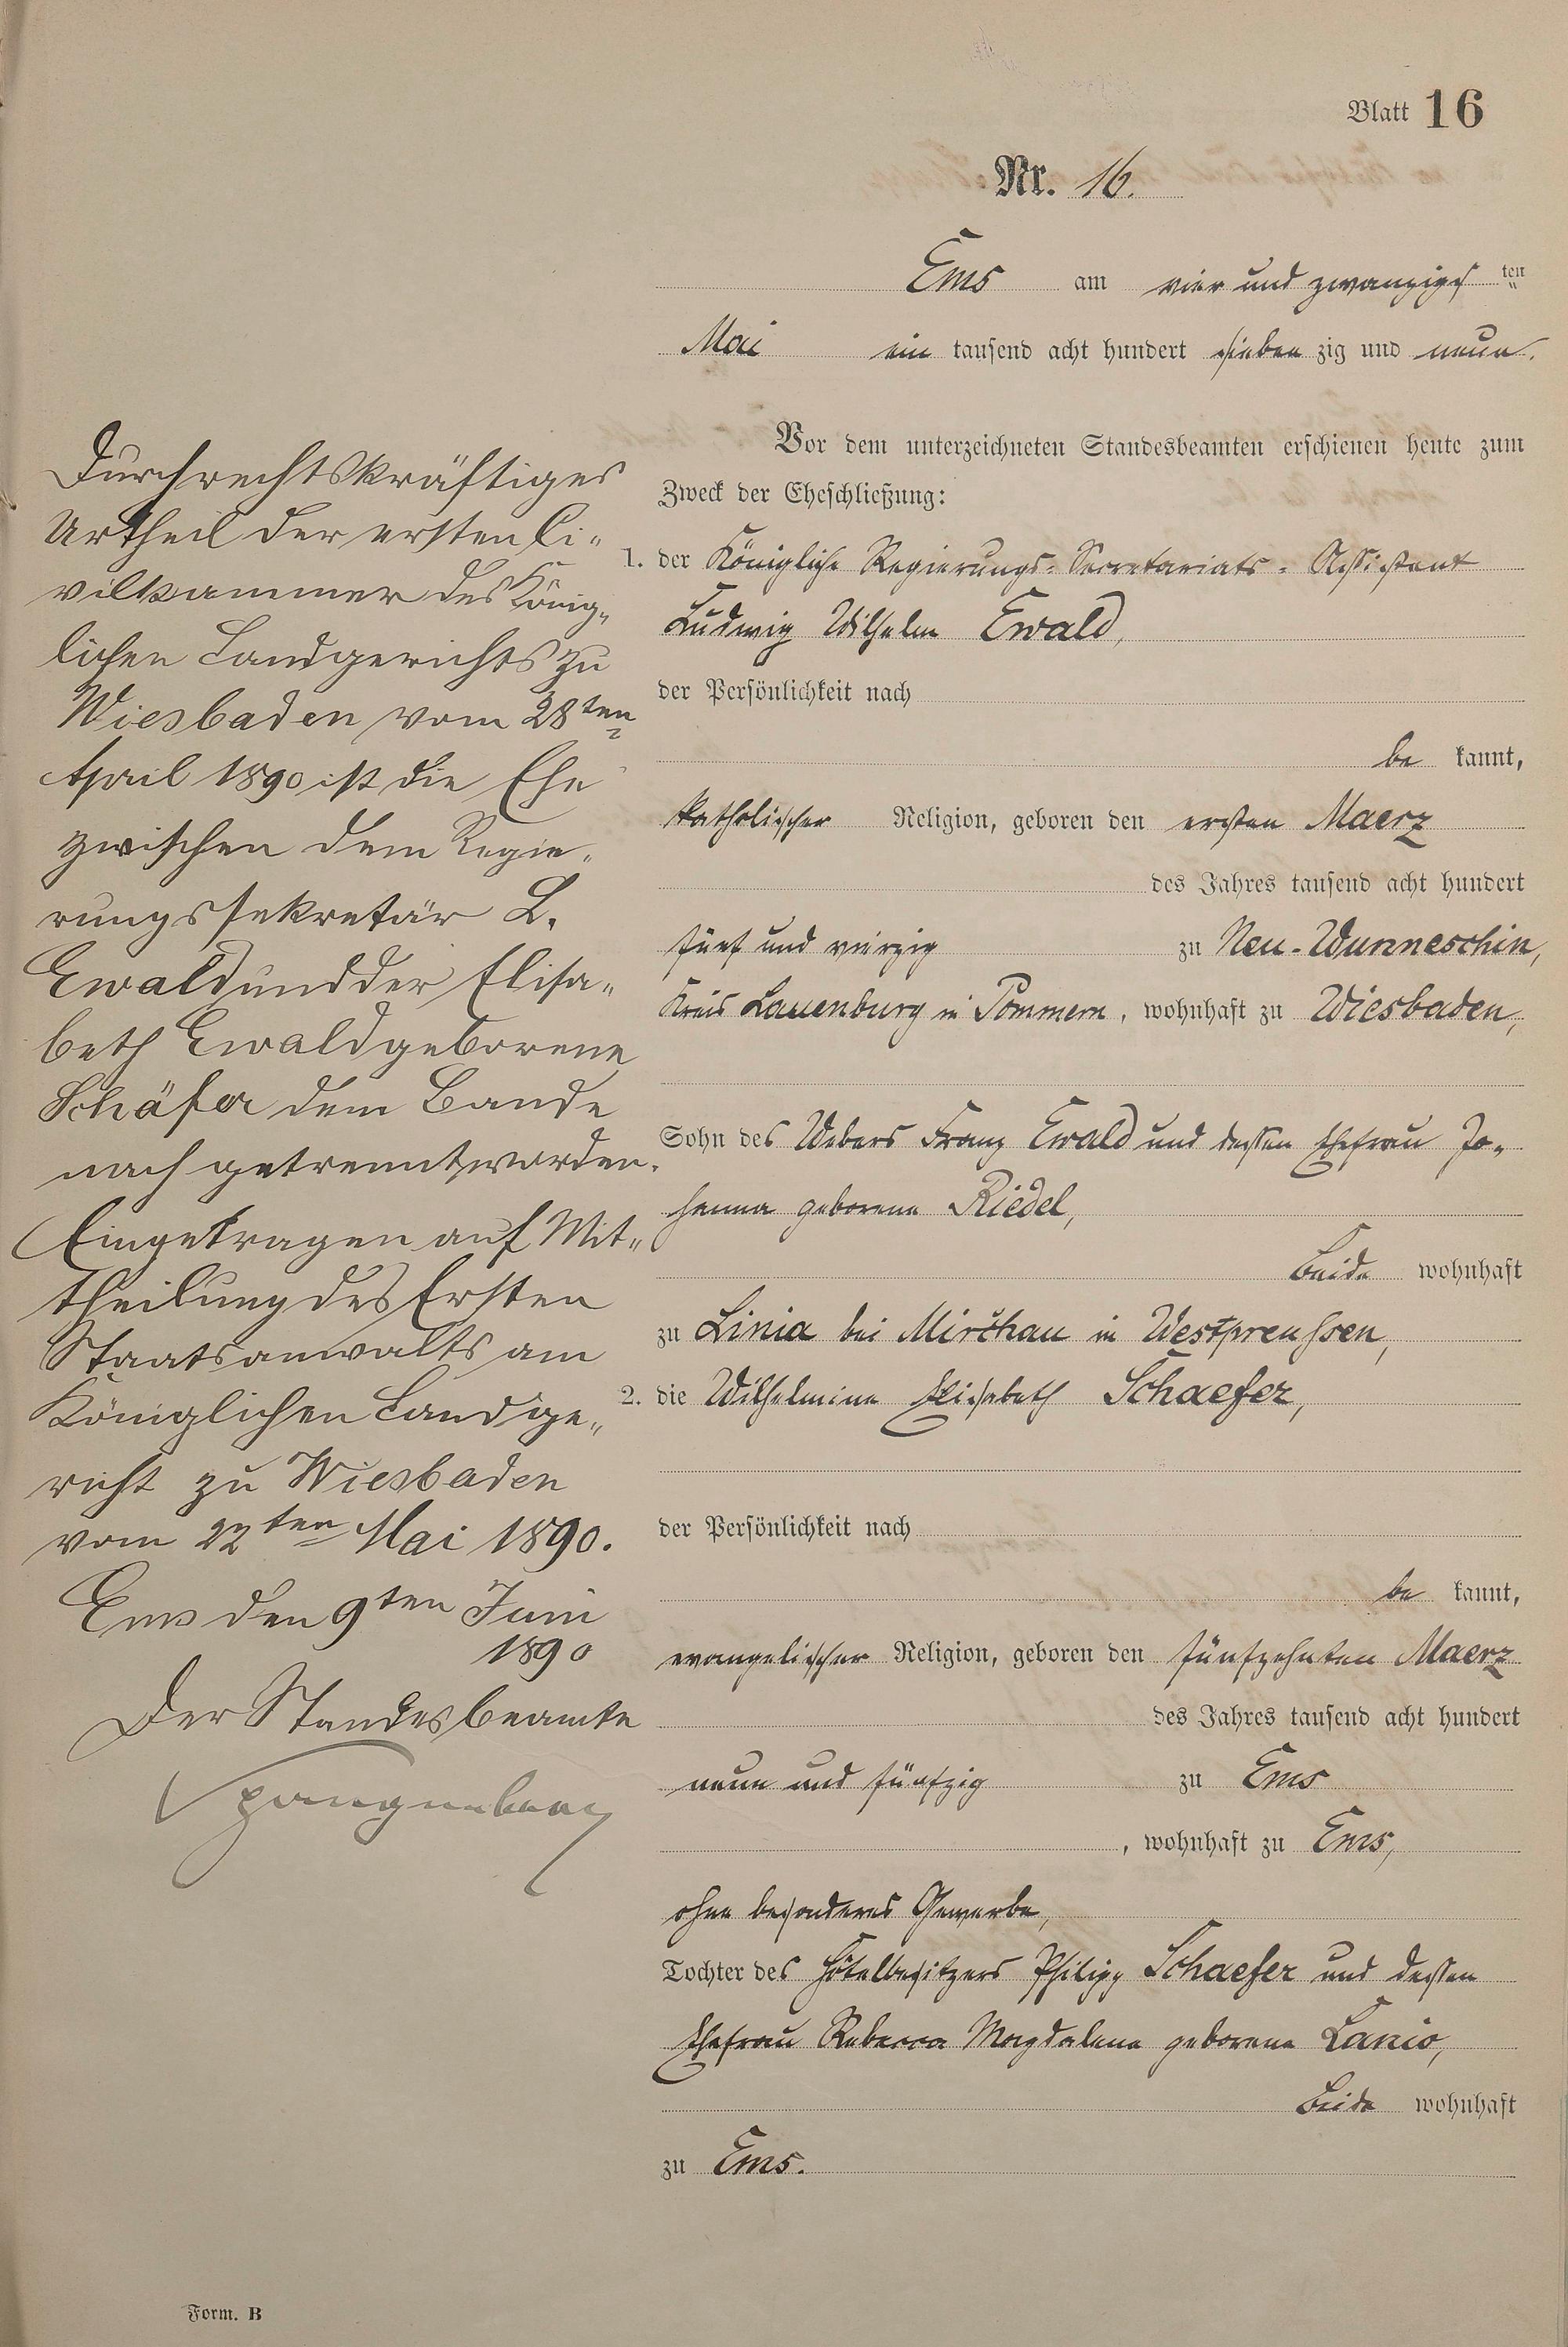 Blatt 16
Nr. 16.
Ems am vier und zwanzigsten
Mai ein tausend acht hundert sieben zig und neun.
Vor dem unterzeichneten Standesbeamten erschienen heute zum
Zweck der Eheschließung:
1. der Königliche Regierungs-Secretariats-Assistent
Ludwig Wilhelm Ewald,
der Persönlichkeit nach
be kannt,
katholischer Religion, geboren den ersten Maerz
des Jahres tausend acht hundert
fünf und vierzig zu Neu-Wunneschin,
Kreis Lauenburg in Pommern, wohnhaft zu Wiesbaden,
Sohn des Webers Franz Ewald und dessen Ehefrau Jo-
hanna geborene Riedel,
beide wohnhaft
zu Linia bei Mirchau in Westpreußen,
2. die Wilhelmine Elisabeth Schaefer,
der Persönlichkeit nach
be kannt,
evangelischer Religion, geboren den fünfzehnten Maerz
des Jahres tausend acht hundert
neun und fünfzig zu Ems
, wohnhaft zu Ems,
ohne besonderes Gewerbe,
Tochter des Hôtelbesitzers Philipp Schaefer und dessen
Ehefrau Rebecca Magdalena geborene Lanio,
beide wohnhaft
zu Ems.
Durch rechtskräftiges
Urtheil der ersten Ci-
vilkammer des König-
lichen Landgerichts zu
Wiesbaden vom 28ten
April 1890 ist die Ehe
zwischen dem Regie-
rungssekretär L.
Ewald und der Elisa-
beth Ewald geborene
Schäfer dem Bande
nach getrennt worden.
Eingetragen auf Mit-
theilung des Ersten
Staatsanwalts am
Königlichen Landge-
richt zu Wiesbaden
vom 22ten Mai 1890.
Ems den 9ten Juni
1890
Der Standesbeamte
Spangenberg
Form. B